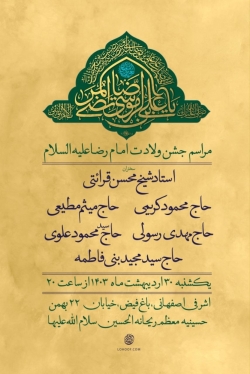 یا علی بن موسی الرضا المرتضی
مراسم جشن ولادت امام رضا علیه السلام
استاد شیخ محسن قرائتی
حاج محمود کریمی حاج میثم مطیعی
حاج مهدی رسولی حاج سید محمود علوی
حاج سید مجید بنی فاطمه
یکشنبه ۳۰ اردیبهشت ماه ۱۴۰۳ از ساعت ۲۰
اشرفی اصفهانی، باغ فیض، خیابان ۲۲ بهمن
حسینیه معظم ریحانه الحسین سلام الله علیها